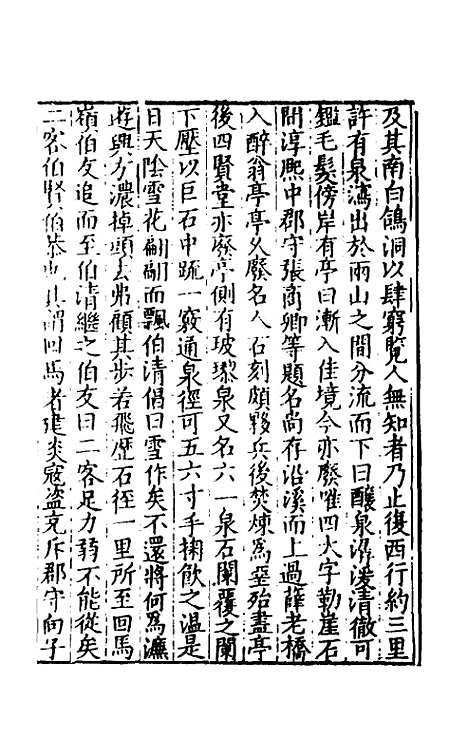 及其南白鴿洞以肆窮覽人無知者乃止復西行約三里
許有泉瀉出於兩山之間分流而下曰釀泉潺湲清徹可
鑑毛髮傍岸有亭曰漸入佳境今亦廢唯四大字勒崖石
間淳熙中郡守張商卿等題名尚存沿溪而上過薛老橋
入醉翁亭亭久廢名人石刻頗夥兵後焚煉為堊殆盡亭
後四賢堂亦廢亭側有玻瓈泉又名六一泉石闌覆之闌
下壓以巨石中䟽一竅通泉徑可五六寸手掬飲之温是
日天陰雪花翩翩而飄伯清倡曰雪作矣不還將何為濂
遊興方濃掉頭去弗顧其步若飛歷石徑一里所至回馬
嶺伯友追而至伯清繼之伯友曰二客足力弱不能從矣
二客伯賢伯恭也其謂回馬者建炎寇盜充斥郡守向子